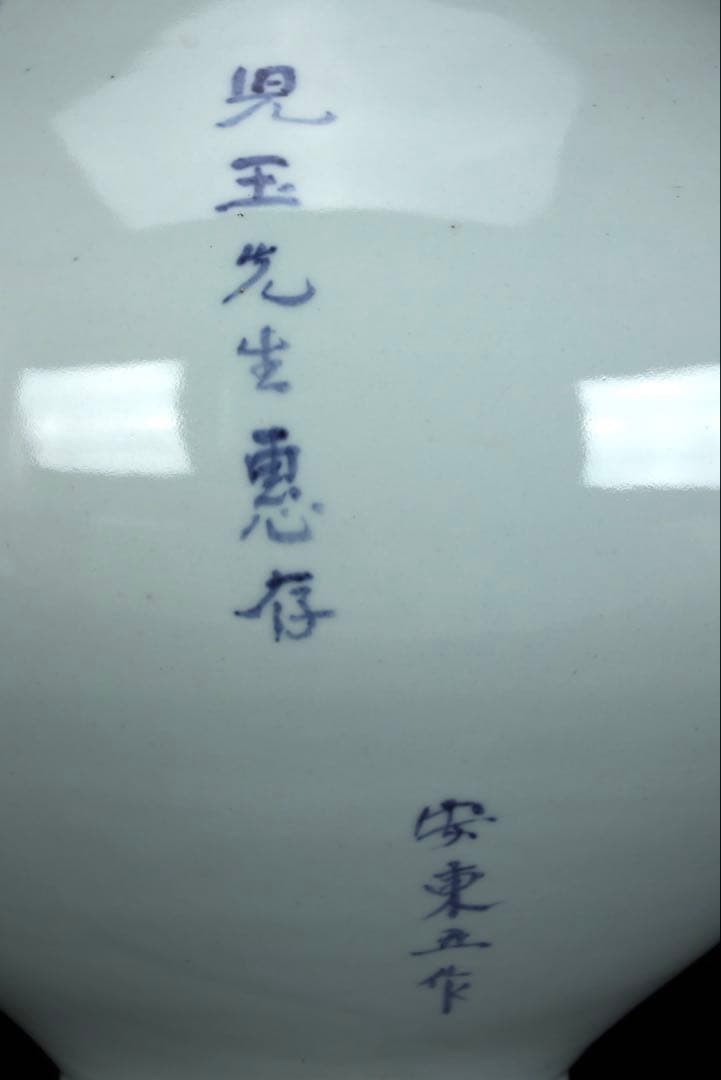 児玉先生惠存
安東五作